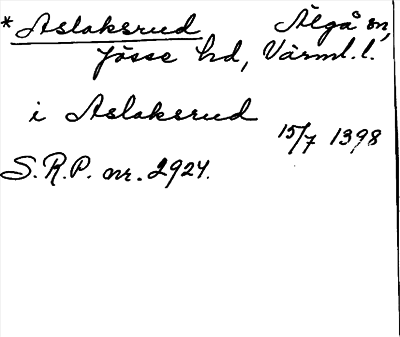 * Aslaksrud Älgå sn,
Jösse hd, Värml. l.
i Aslaksrud
15/7 1398
S.R.P. nr. 2924.